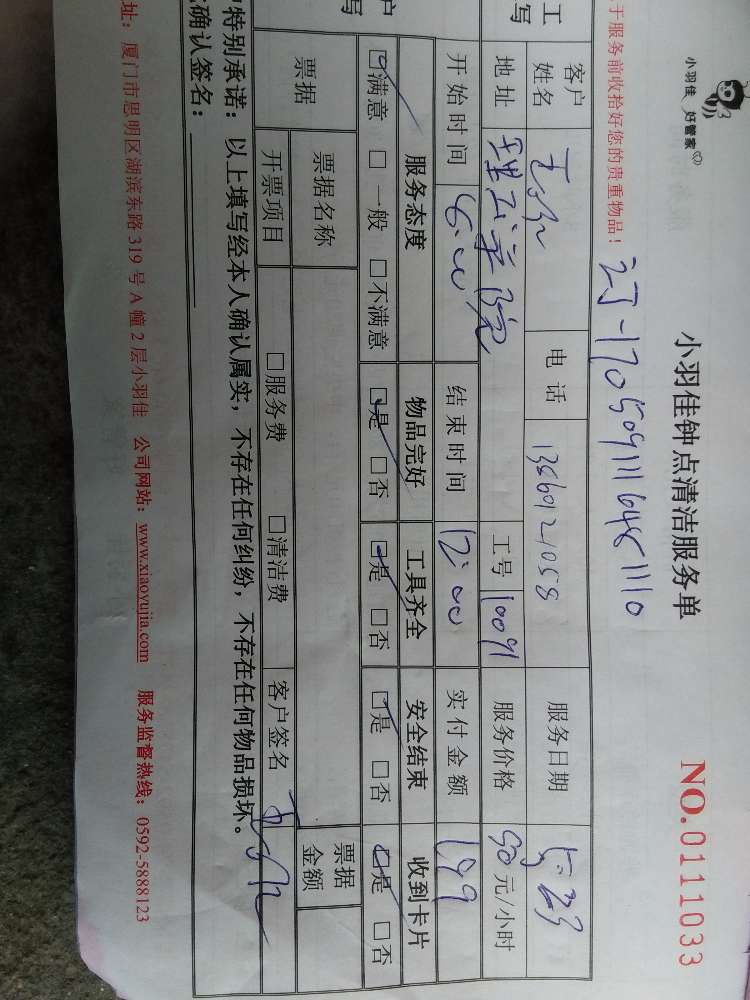 小羽佳 好管家
小羽佳钟点清洁服务单
NO.0111033
于服务前收拾好您的贵重物品!
2J-17050911164811110
工
写
客户
姓名
电 话
13860121058
服务日期
5.23
地址
理工学院
工号
10091
服务价格
元/小时
开始时间
8:00
结束时间
12:00
实付金额
199
户
写
服务态度
物品完好
工具齐全
安全结束
收到卡片
☑满意 □一般 □不满意
☑是 □否
☑是 □否
☑是 □否
☑是 □否
票据
票据名称
票据
金额
开票项目
□服务费 □清洁费
客户签名
户特别承诺:以上填写经本人确认属实,不存在任何纠纷,不存在任何物品损坏。
确认签名:
址:厦门市思明区湖滨东路 319 号 A 幢 2 层小羽佳 公司网站:www.xiaoyujia.com 服务监督热线:0592-5888123